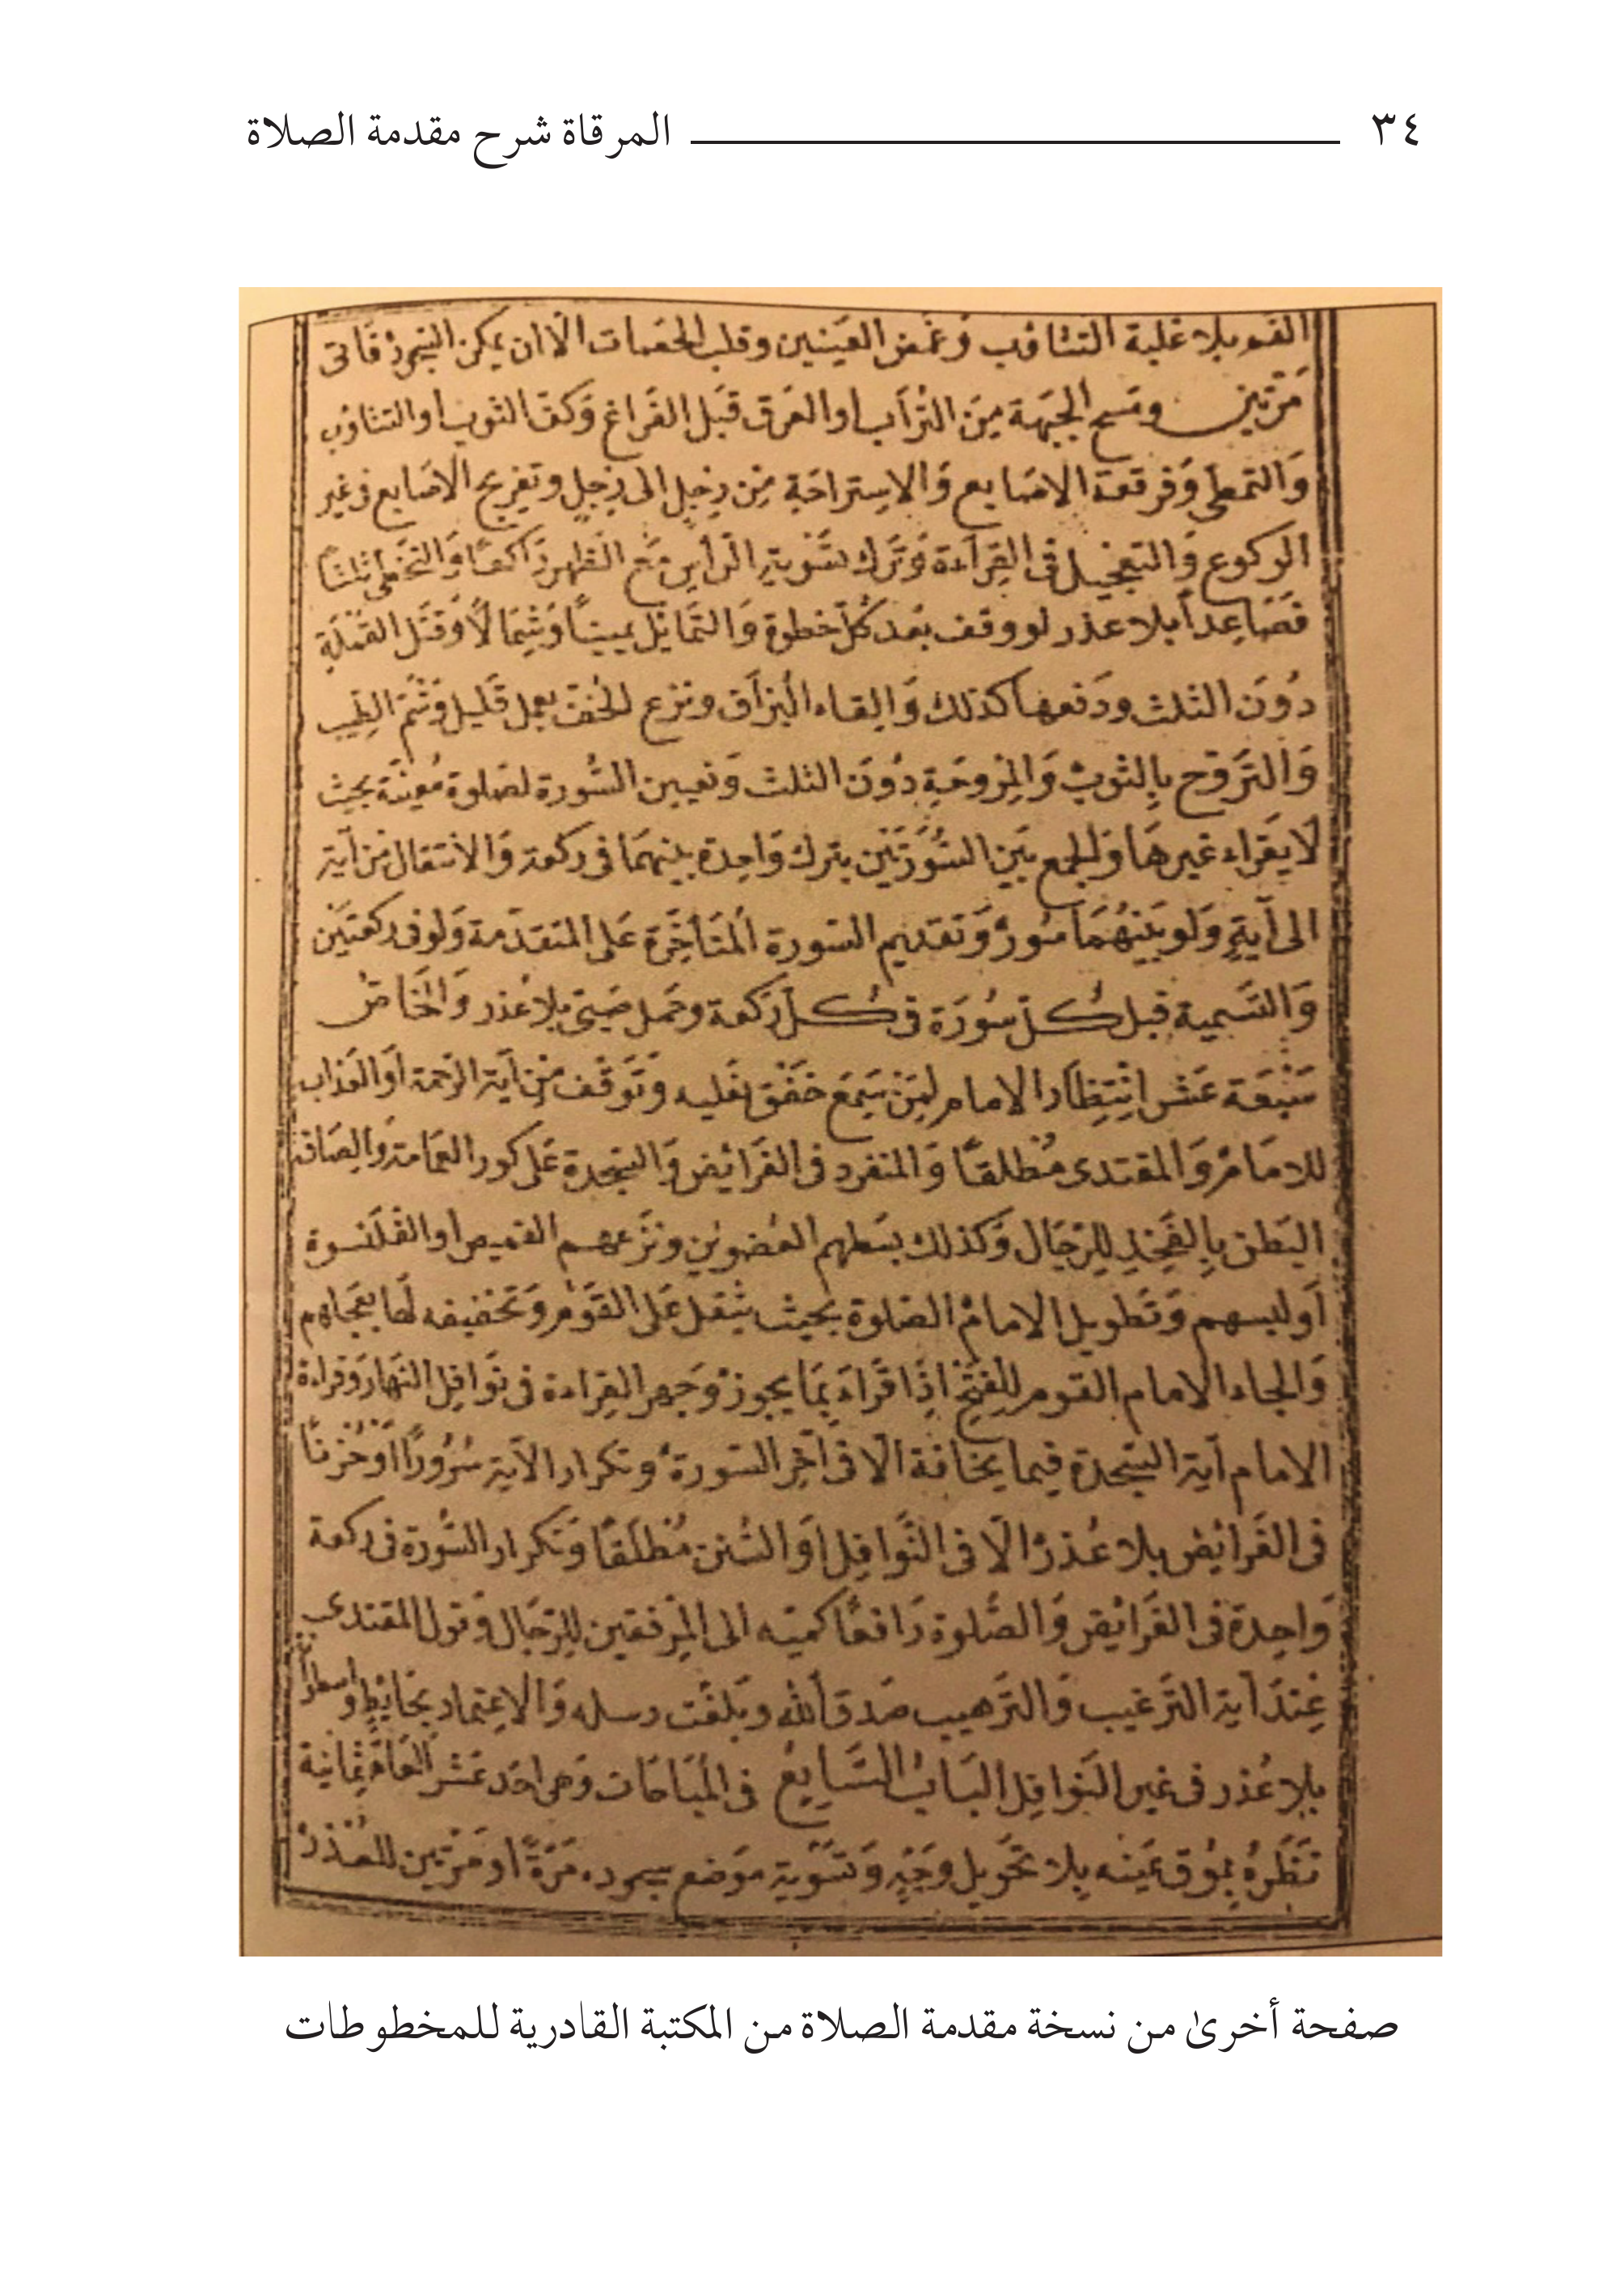 ٣٤ المرقاة شرح مقدمة الصلاة
الفم بلا غلبة التثاؤب وغمض العينين وقلب الحصات الا ان يمكن السجود فاتى
مرتين ومسح الجبهة مِنَ التراب او العرق قبل الفراغ وكف الثوب او التثاؤب
وَالتمطى وفرقعة الاصابع وَالاستراحة مِن رِجل الى رِجل وتفريج الاصابع فى غير
الركوع وَالتعجيل فى القرآءة وَترك تسوية الرأس مع الظهر راكعًا وَالتخطى ثلثًا
فصاعداً بلا عذر لو وقف بعد كلّ خطوة وَالتمايل يمينًا وشمالاً وقتل القملة
دُونَ الثلث ودفعها كذلك وَالقاء البزاق ونزع الخف بعمل قليل وَشمّ الطيب
وَالتروح بِالثوب وَالمِروحة دُونَ الثلث وَتعيين السُّورة لصلوة مُعينة بحيث
لا يقراء غيرها وَالجمع بَين السُّورَتَين بترك وَاحدة بينهما فى ركعة وَالانتقال من آية
الى آيةٍ وَلو بَينهُما سُورٌ وَتقديم السورة المتأخرة على المتقدّمة وَلو فى ركعتين
وَالتسمية قبل كُلّ سُورَة فى كُلّ ركعة وحمل صبىّ بلا عذر وَالخاصّ
سَبْعَة عَشر انتِظار الامام لِمَن سَمِعَ خَفْقَ نعليه وَتَوَقّف مِن آية الرّحمة أو العذاب
للامام وَالمقتدى مُطلقًا وَالمنفرد فى الفَرائِض وَالسّجدة عَلى كور العمامة وَالصاق
البَطن بِالفخذ لِلرّجال وَكذلك بسطهم العضوين ونزعهم القميص او القلنسوة
أو لبسهم وَتطويل الامام الصلوة بحيث يثقل عَلى القوم وَتخفيفه لها بعجلهم
وَالجاء الامام القوم لِلفتح اِذا قراءَ بِما يجوز وَجهر القراءة فى نَوافِل النّهار وَقراءة
الامام آية السّجدة فيما يخافة الّا فى آخر السّورة وتكرار الآية سُرُورًا أَوْ حُزنًا
فى الفَرائِض بلا عُذرٍ الّا فى النّوافِل اَوالسُّنن مُطلَقًا وَتكرار السُّورة فى ركعة
وَاحِدة فى الفَرائِض وَالصّلوة رَافعًا كميّه الى المِرفقين لِلرّجال وَقول المقتدى
عِندَ آية التّرغيب وَالتّرهيب صَدقَ الله وبَلغت رسله وَالاعتماد بحائطٍ واسطوانة
بلا عُذر فى غير النوافِل البَابُ السَّابِعُ فى المُباحَات وَهى احَد عَشر العام ثمانية
نَظَرهُ بِمُوق عَينه بِلا تحويل وَجْهٍ وَتسوية مَوضع سجوده مَرّةً اَو مَرّتين للعُذر
صفحة أخرىٰ من نسخة مقدمة الصلاة من المكتبة القادرية للمخطوطات